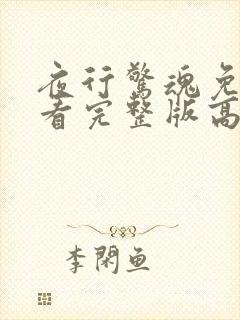 夜行驚魂免
看完整版高
李閑魚